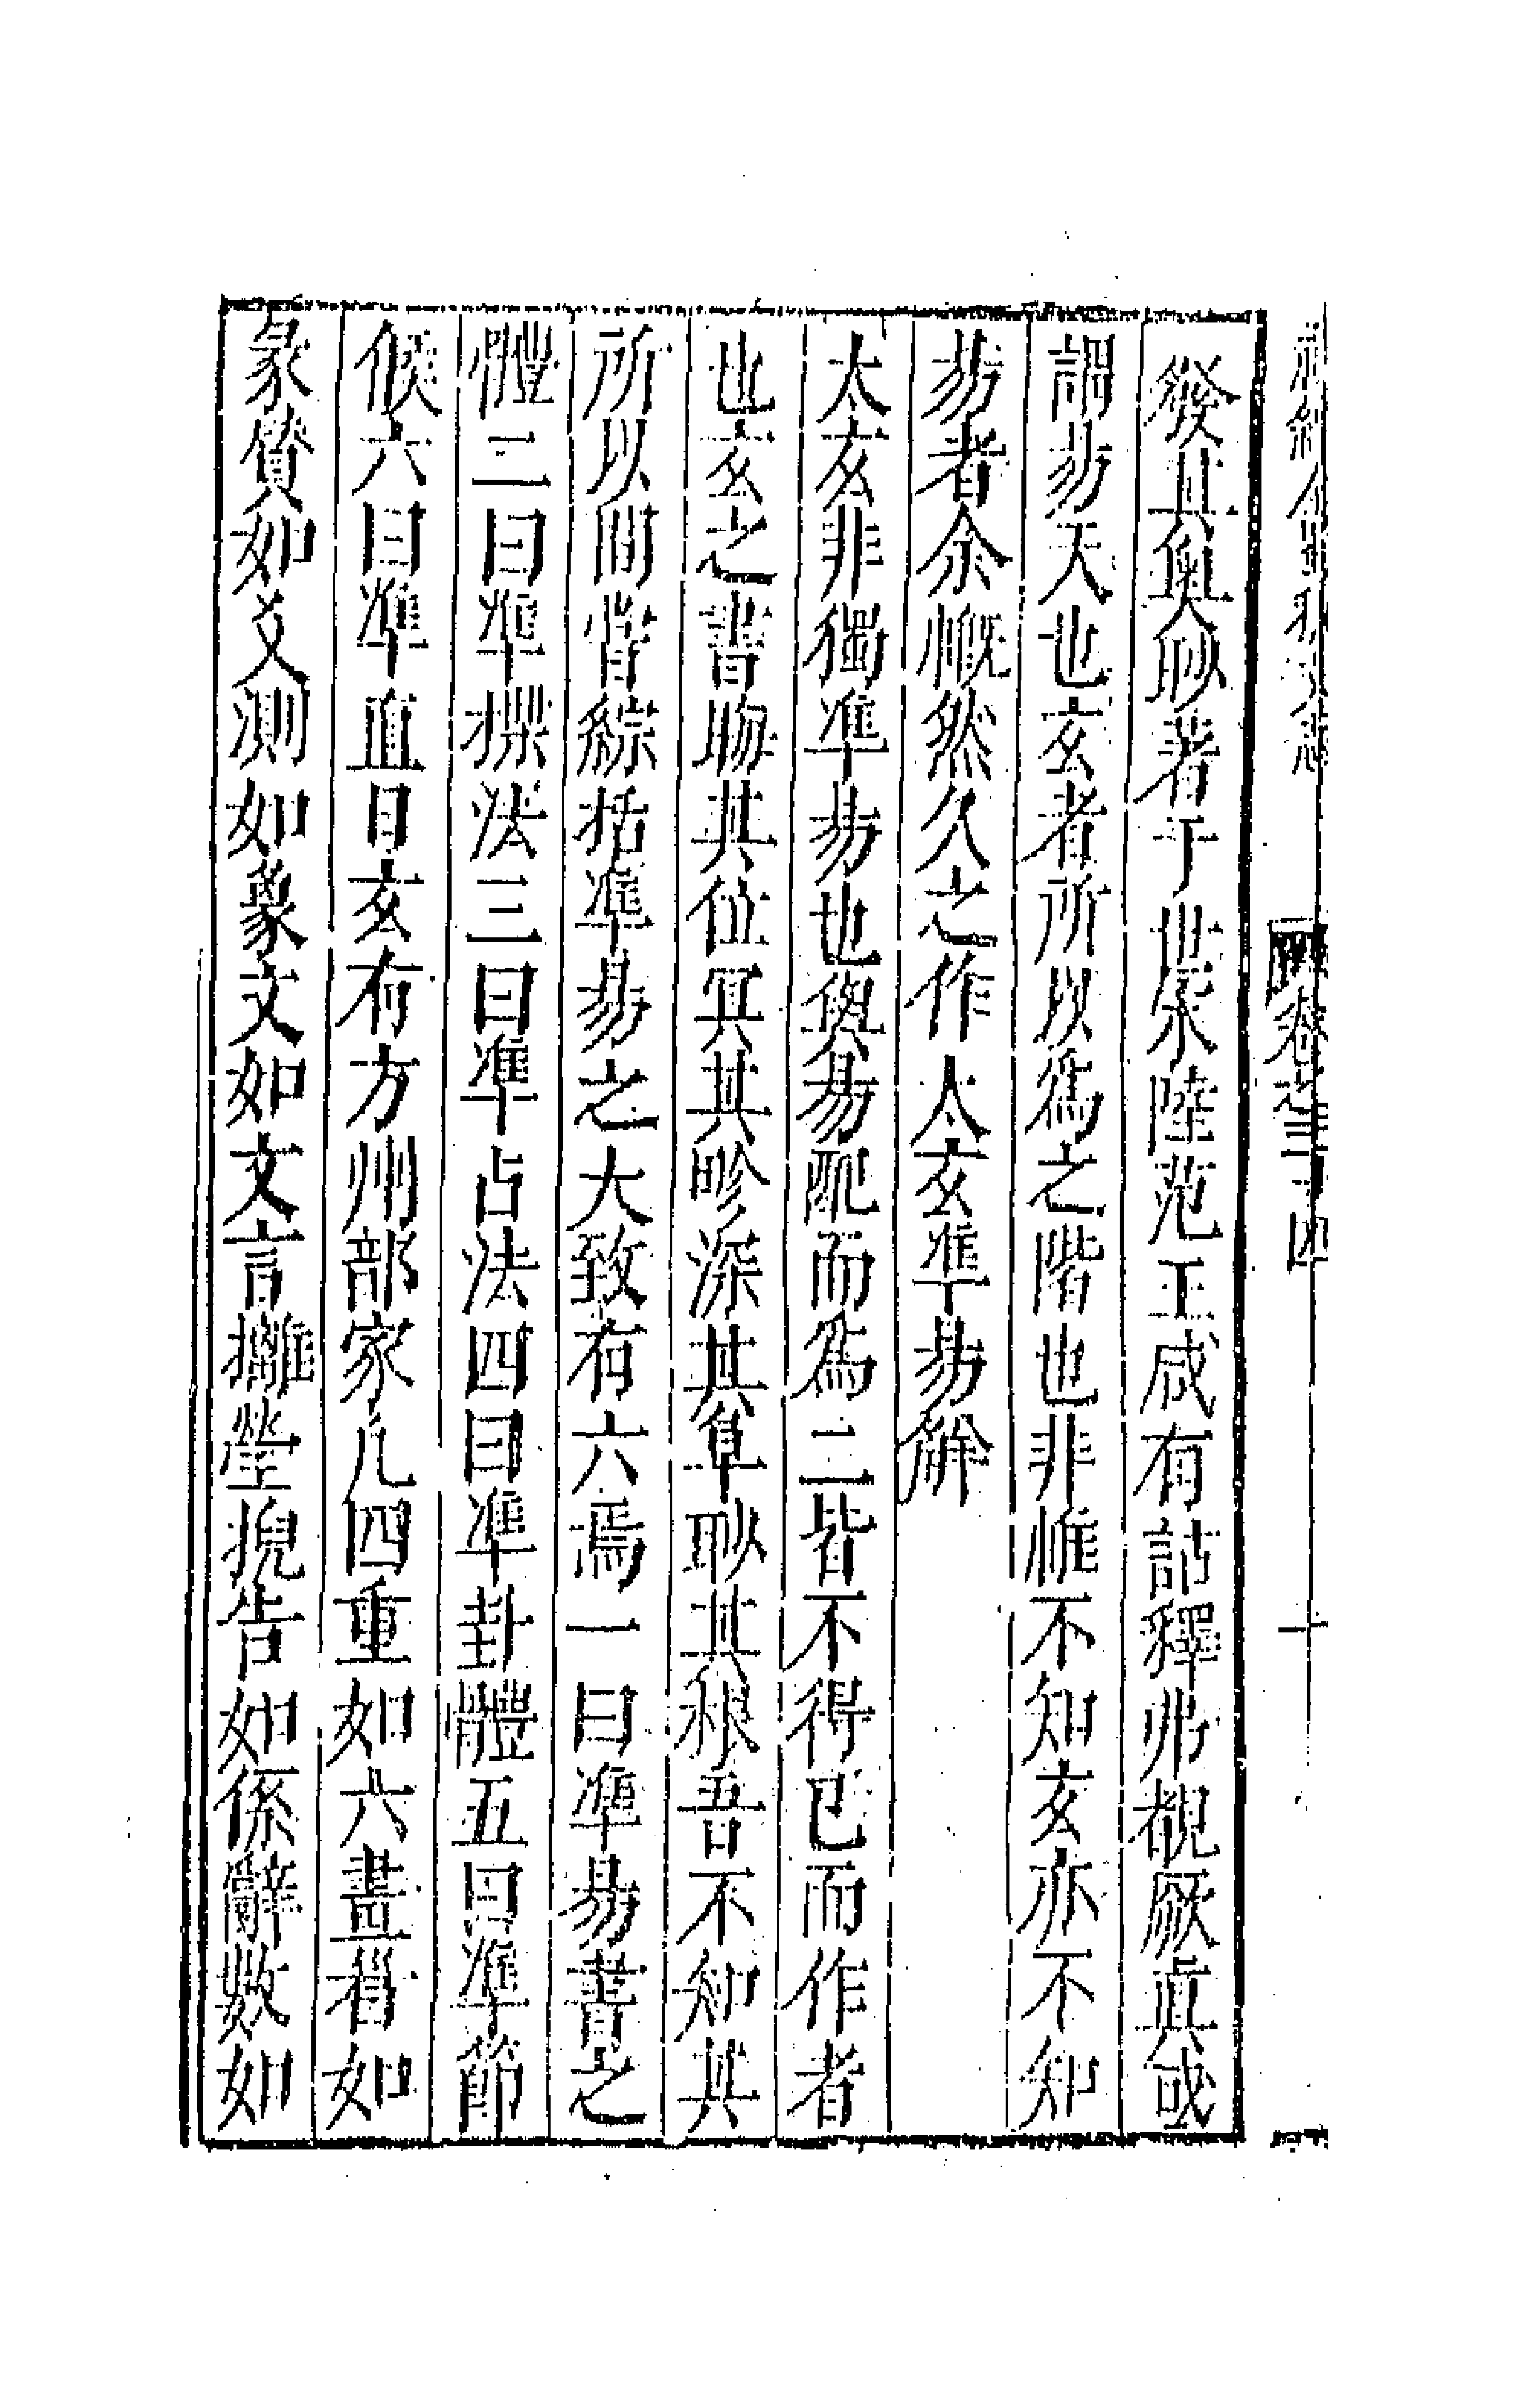 卷之三十四
十
發其奧眇著于世宋陸范王咸有詁釋尠覩厥眞或
謂易天也玄者所以爲之階也非惟不知玄亦不知
易者余慨然久之作太玄準易解
太玄非獨準易也與易配而爲二皆不得已而作者
也玄之書眑其位冥其畛深其阜眇其根吾不知其
所以間嘗綜括準易之大致有六焉一曰準易書之
體二曰準揲法三曰準占法四曰準卦體五曰準節
候六曰準直日玄有方州部家凡四重如六畫首如
彖贊如爻測如象文如文言攡瑩掜告如係辭數如